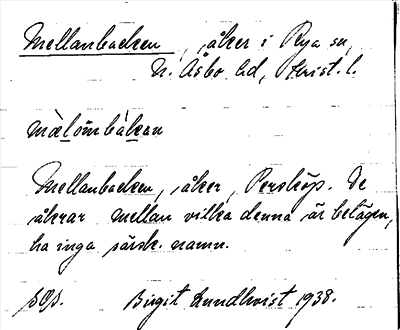 Mellanbacken, åker i Rya sn,
N. Åsbo hd, Krist. l.
Mellanbacken, åker, Perstorp. De
åkrar mellan vilka denna är belägen,
ha inga särsk. namn.
Birgit Lundkvist 1938.